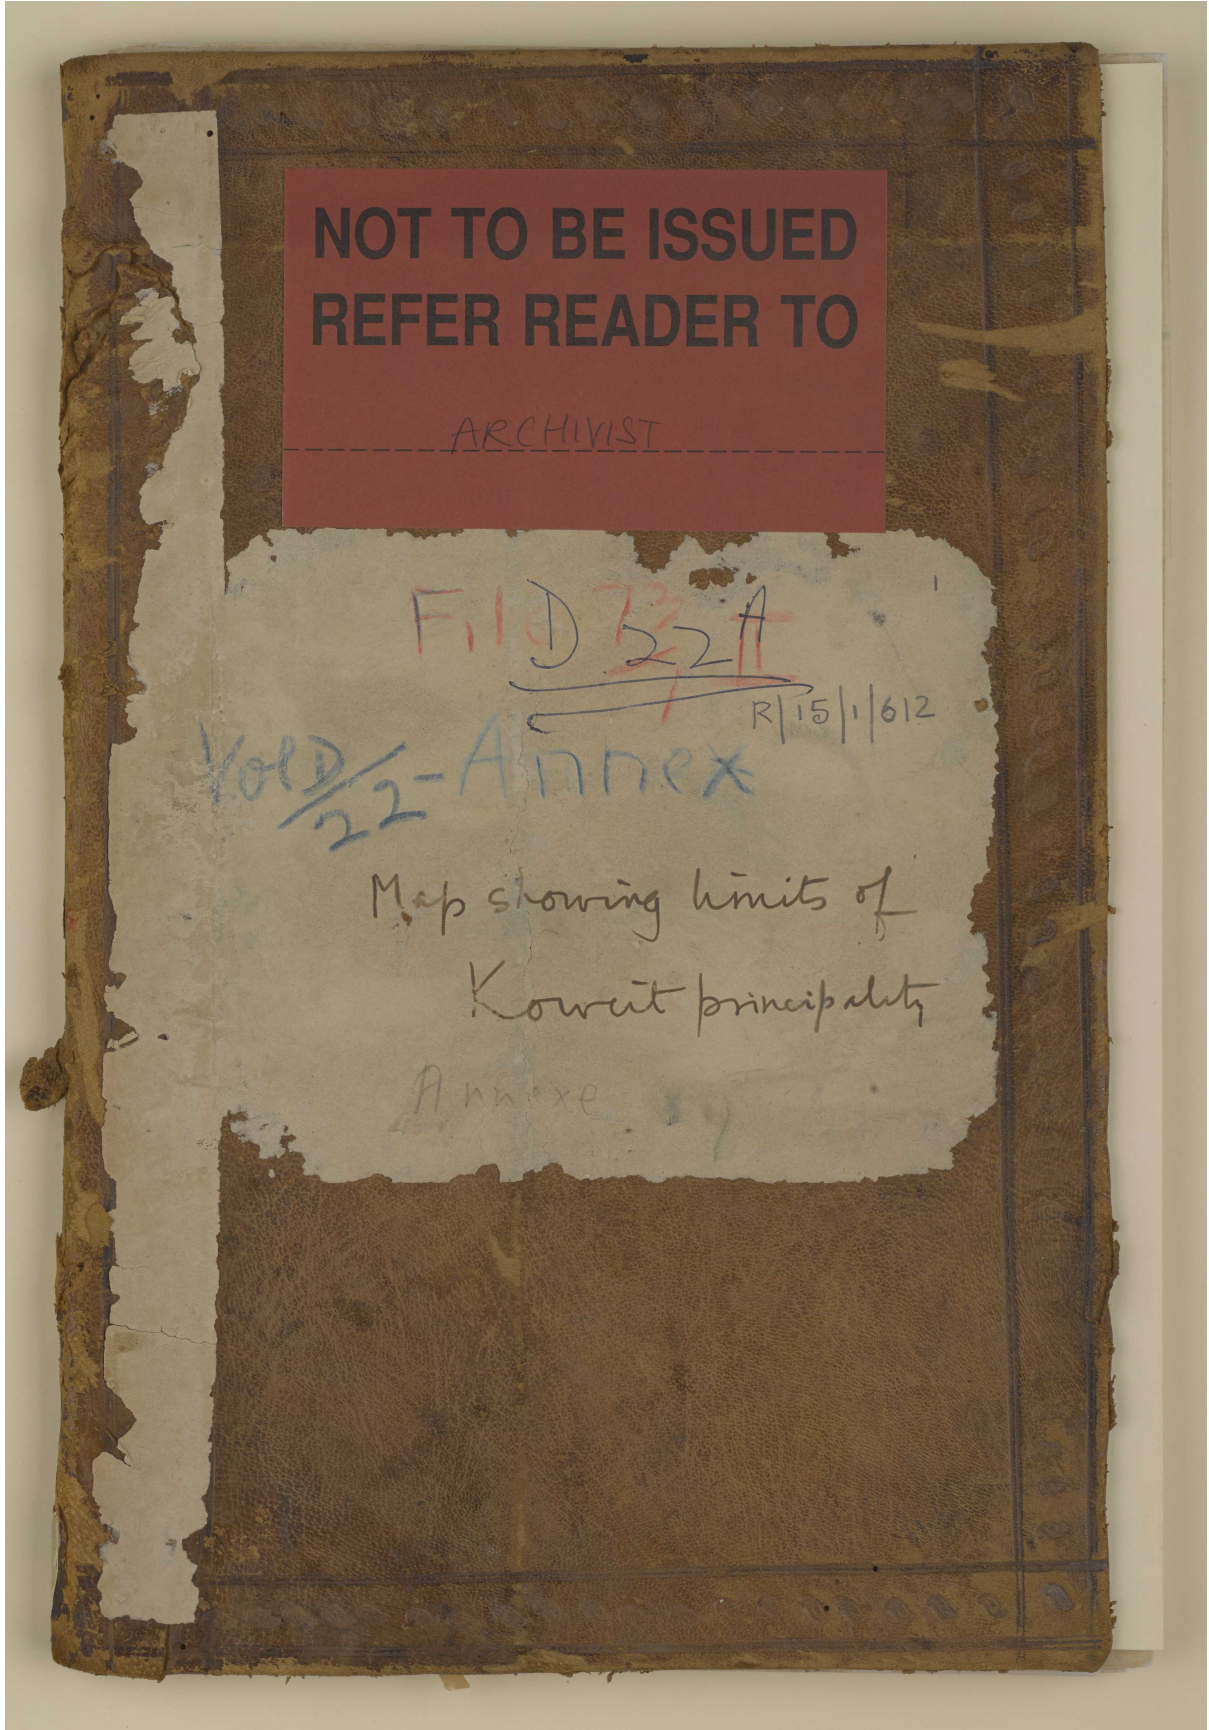 NOT TO BE ISSUED
REFER READER TO
ARCHIVIST
1
D 22 A
R/15/1/612
Vol D/22 - Annex
Map showing limits of
Koweit principality
Annexe